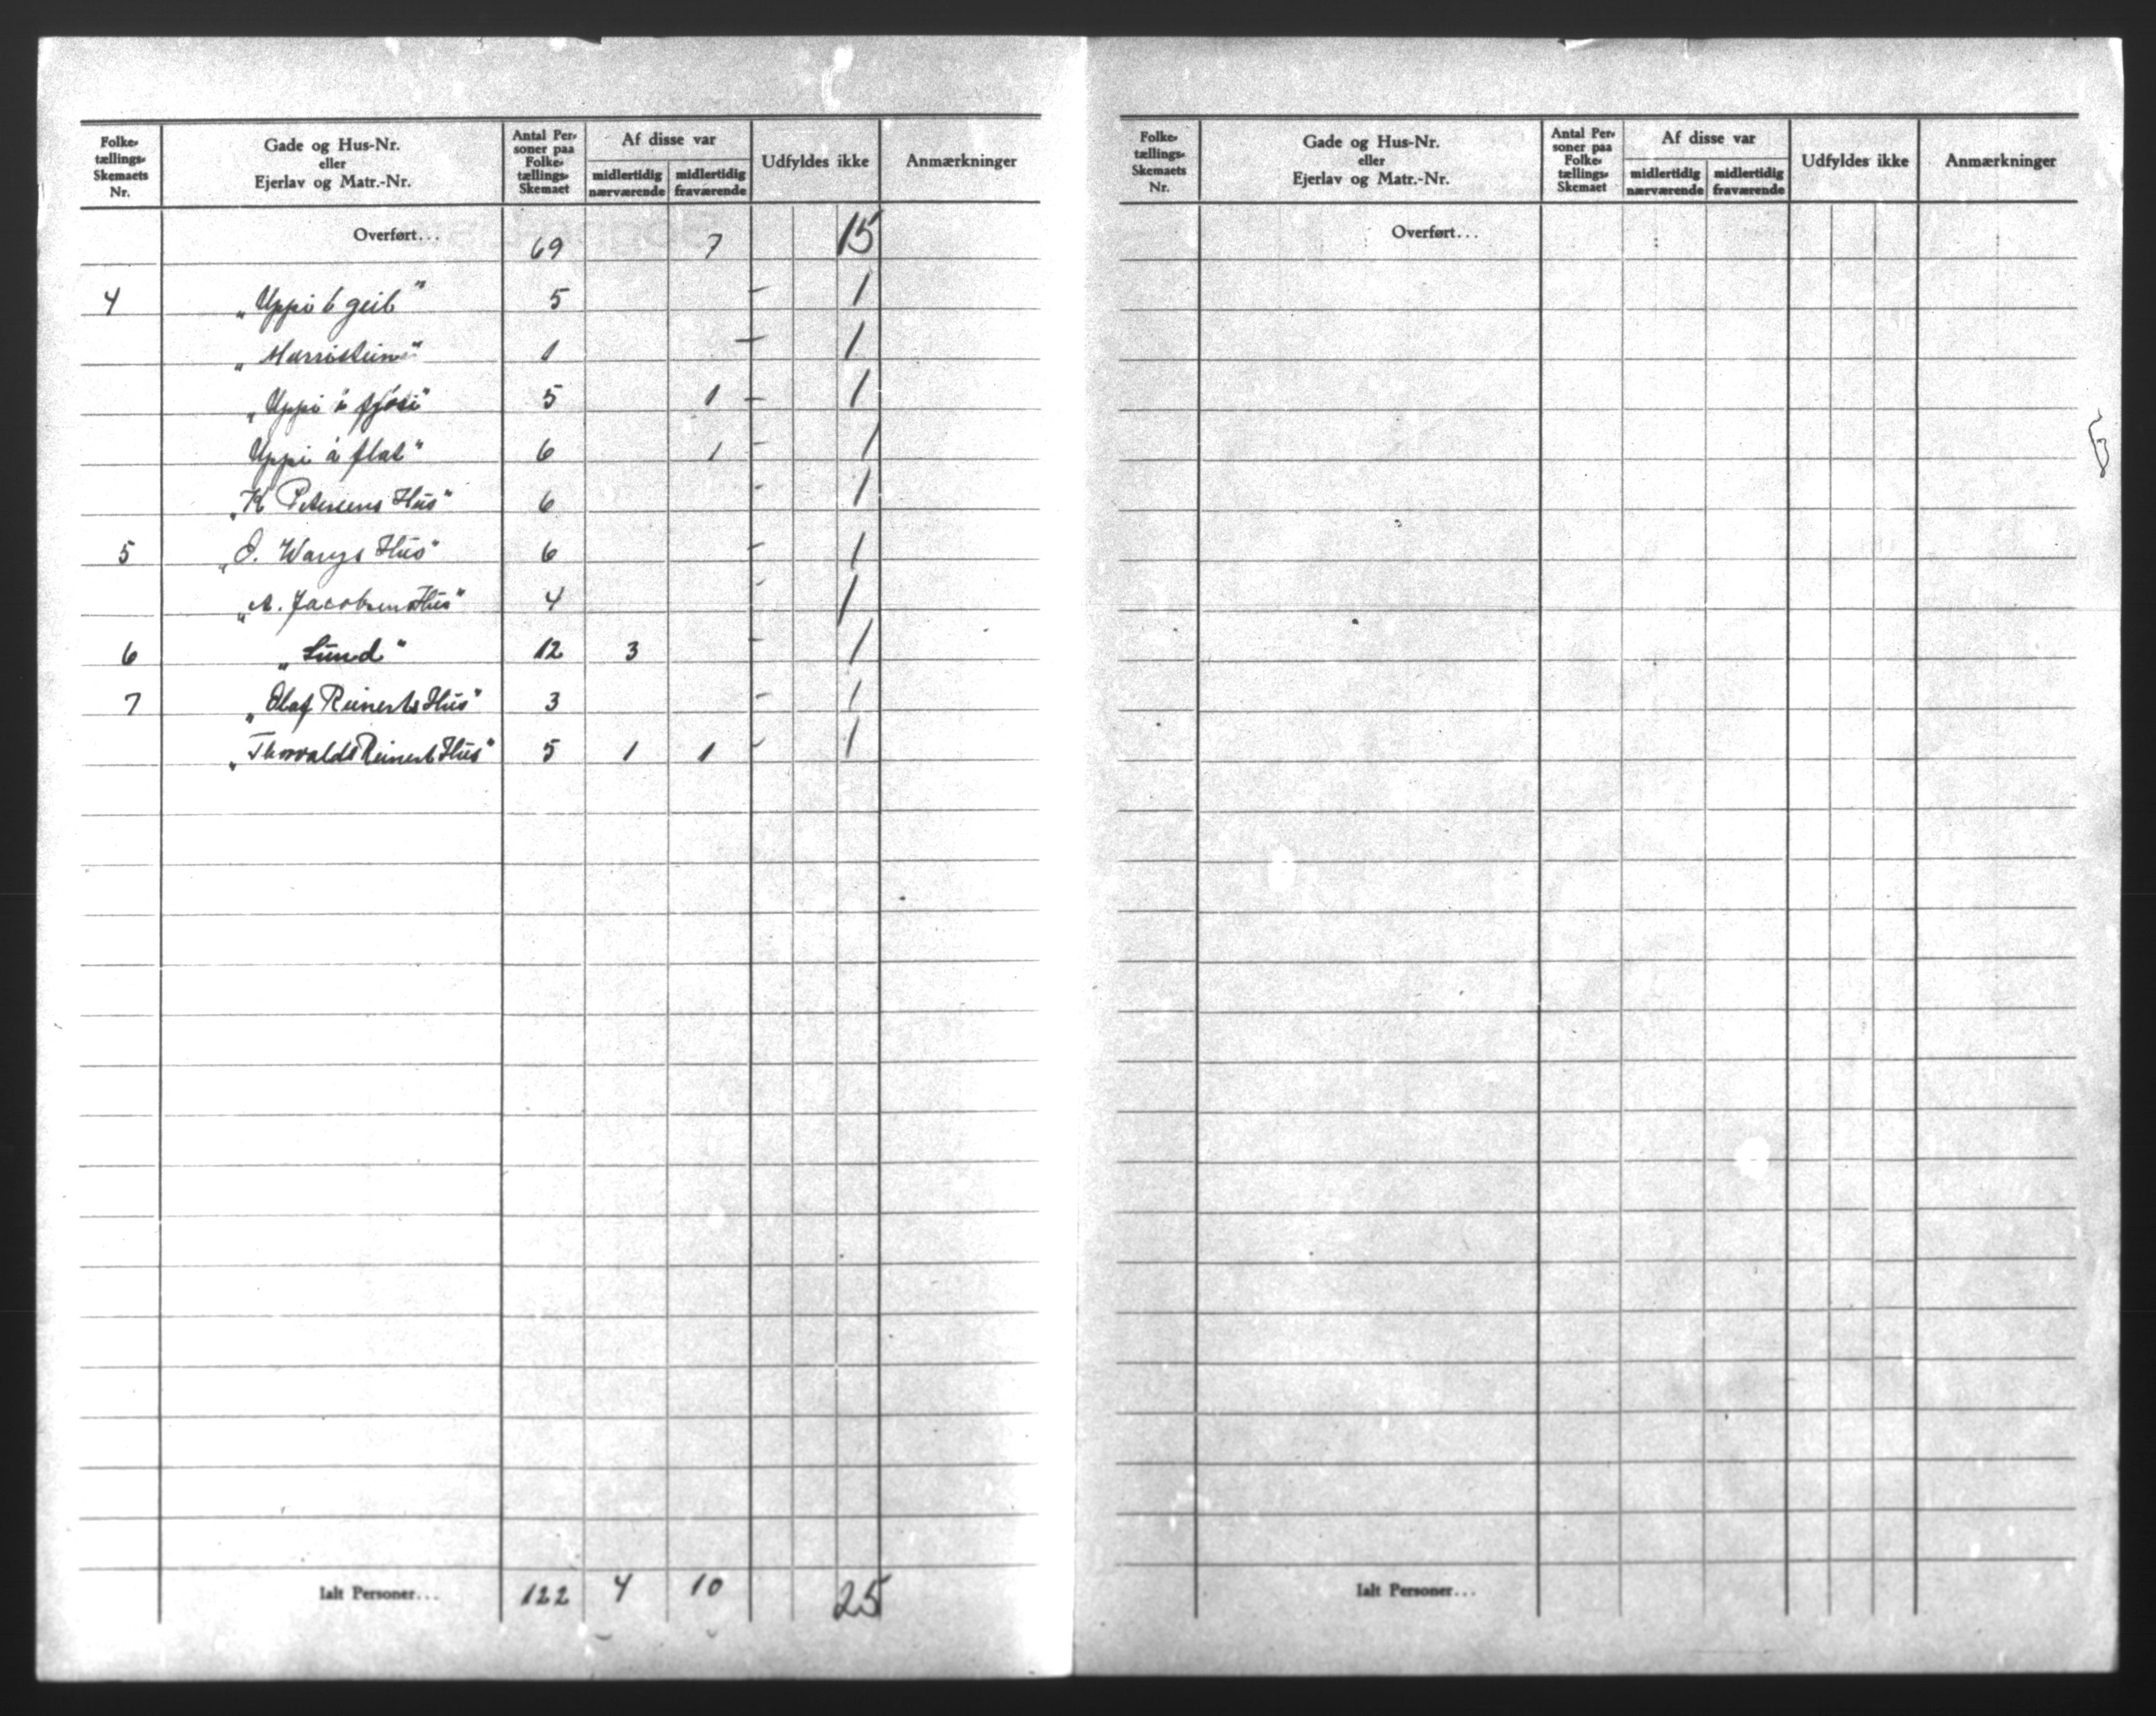 Folke-tællings-Skemaets Nr. | Gade og Hus-Nr. eller Ejerlav og Matr.-Nr. | Antal Per-soner paa Folke-tællings-Skemaet | Af disse var midlertidig nærværende | midlertidig fraværende | Udfyldes ikke | Anmærkninger
Overført... 69 7 15
4 „Uppi 5 – 1
„ 1 – 1
„Uppi á fjósi“ 5 1 – 1
Uppi á flat“ 6 1 – 1
„K Petersens Hús“ 6 – 1
5 „O. Wangs Hús“ 6 – 1
„A. Jacobsens Hús“ 4 – 1
6 „Lund“ 12 3 – 1
7 „Olaf Reinerts Hús“ 3 – 1
„Thorvalds Reinert Hús“ 5 1 1 – 1
Ialt Personer... 122 4 10 25
Folke-tællings-Skemaets Nr. | Gade og Hus-Nr. eller Ejerlav og Matr.-Nr. | Antal Per-soner paa Folke-tællings-Skemaet | Af disse var midlertidig nærværende | midlertidig fraværende | Udfyldes ikke | Anmærkninger
Overført...
Ialt Personer...